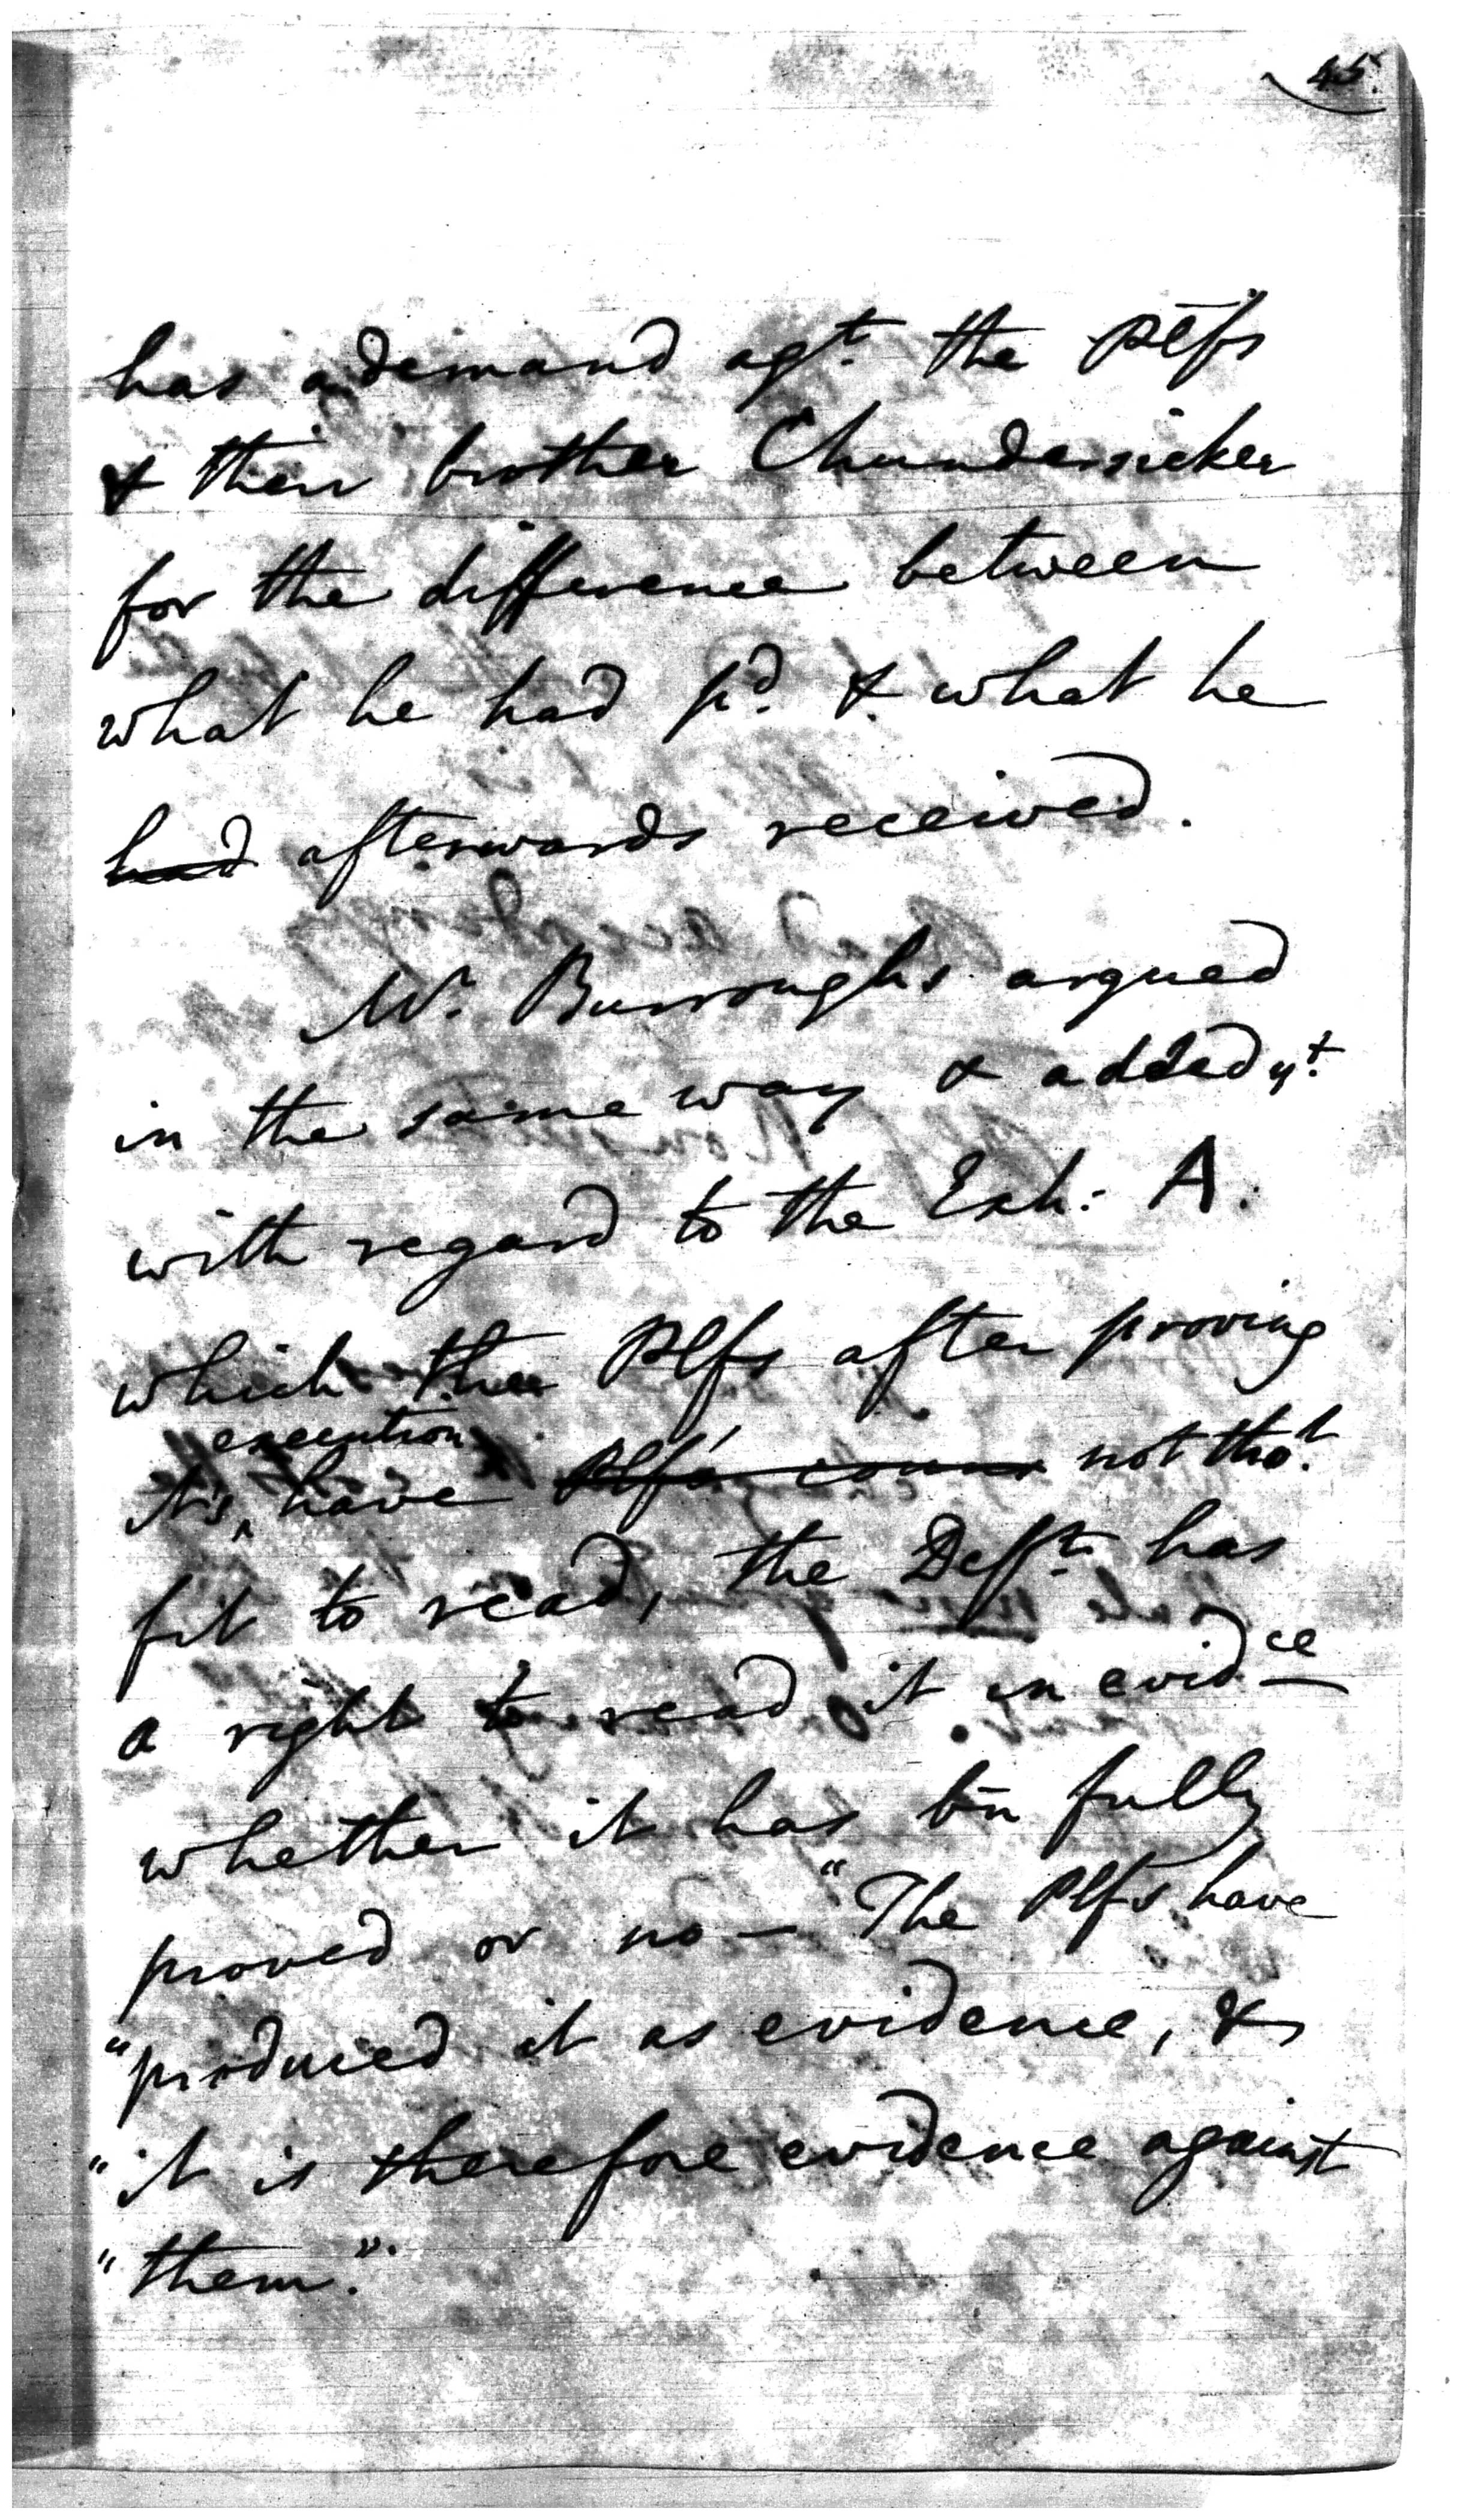 45.
has a demand agt. the Plfs
& their brother Chundersieker
for the difference between
what he had pd. & what he
had afterwards received.
Mr. Burroughs argued
in the same way & added yt.
with regard to the Exh: A.
which the Plfs after proving
execution
its have Plfs' not thot.
fit to read, the Defft. has
a right to read it in evidce
whether it has bn fully
proved or no — "The Plfs have
"produced it as evidence, &
"it is therefore evidence against
"them."